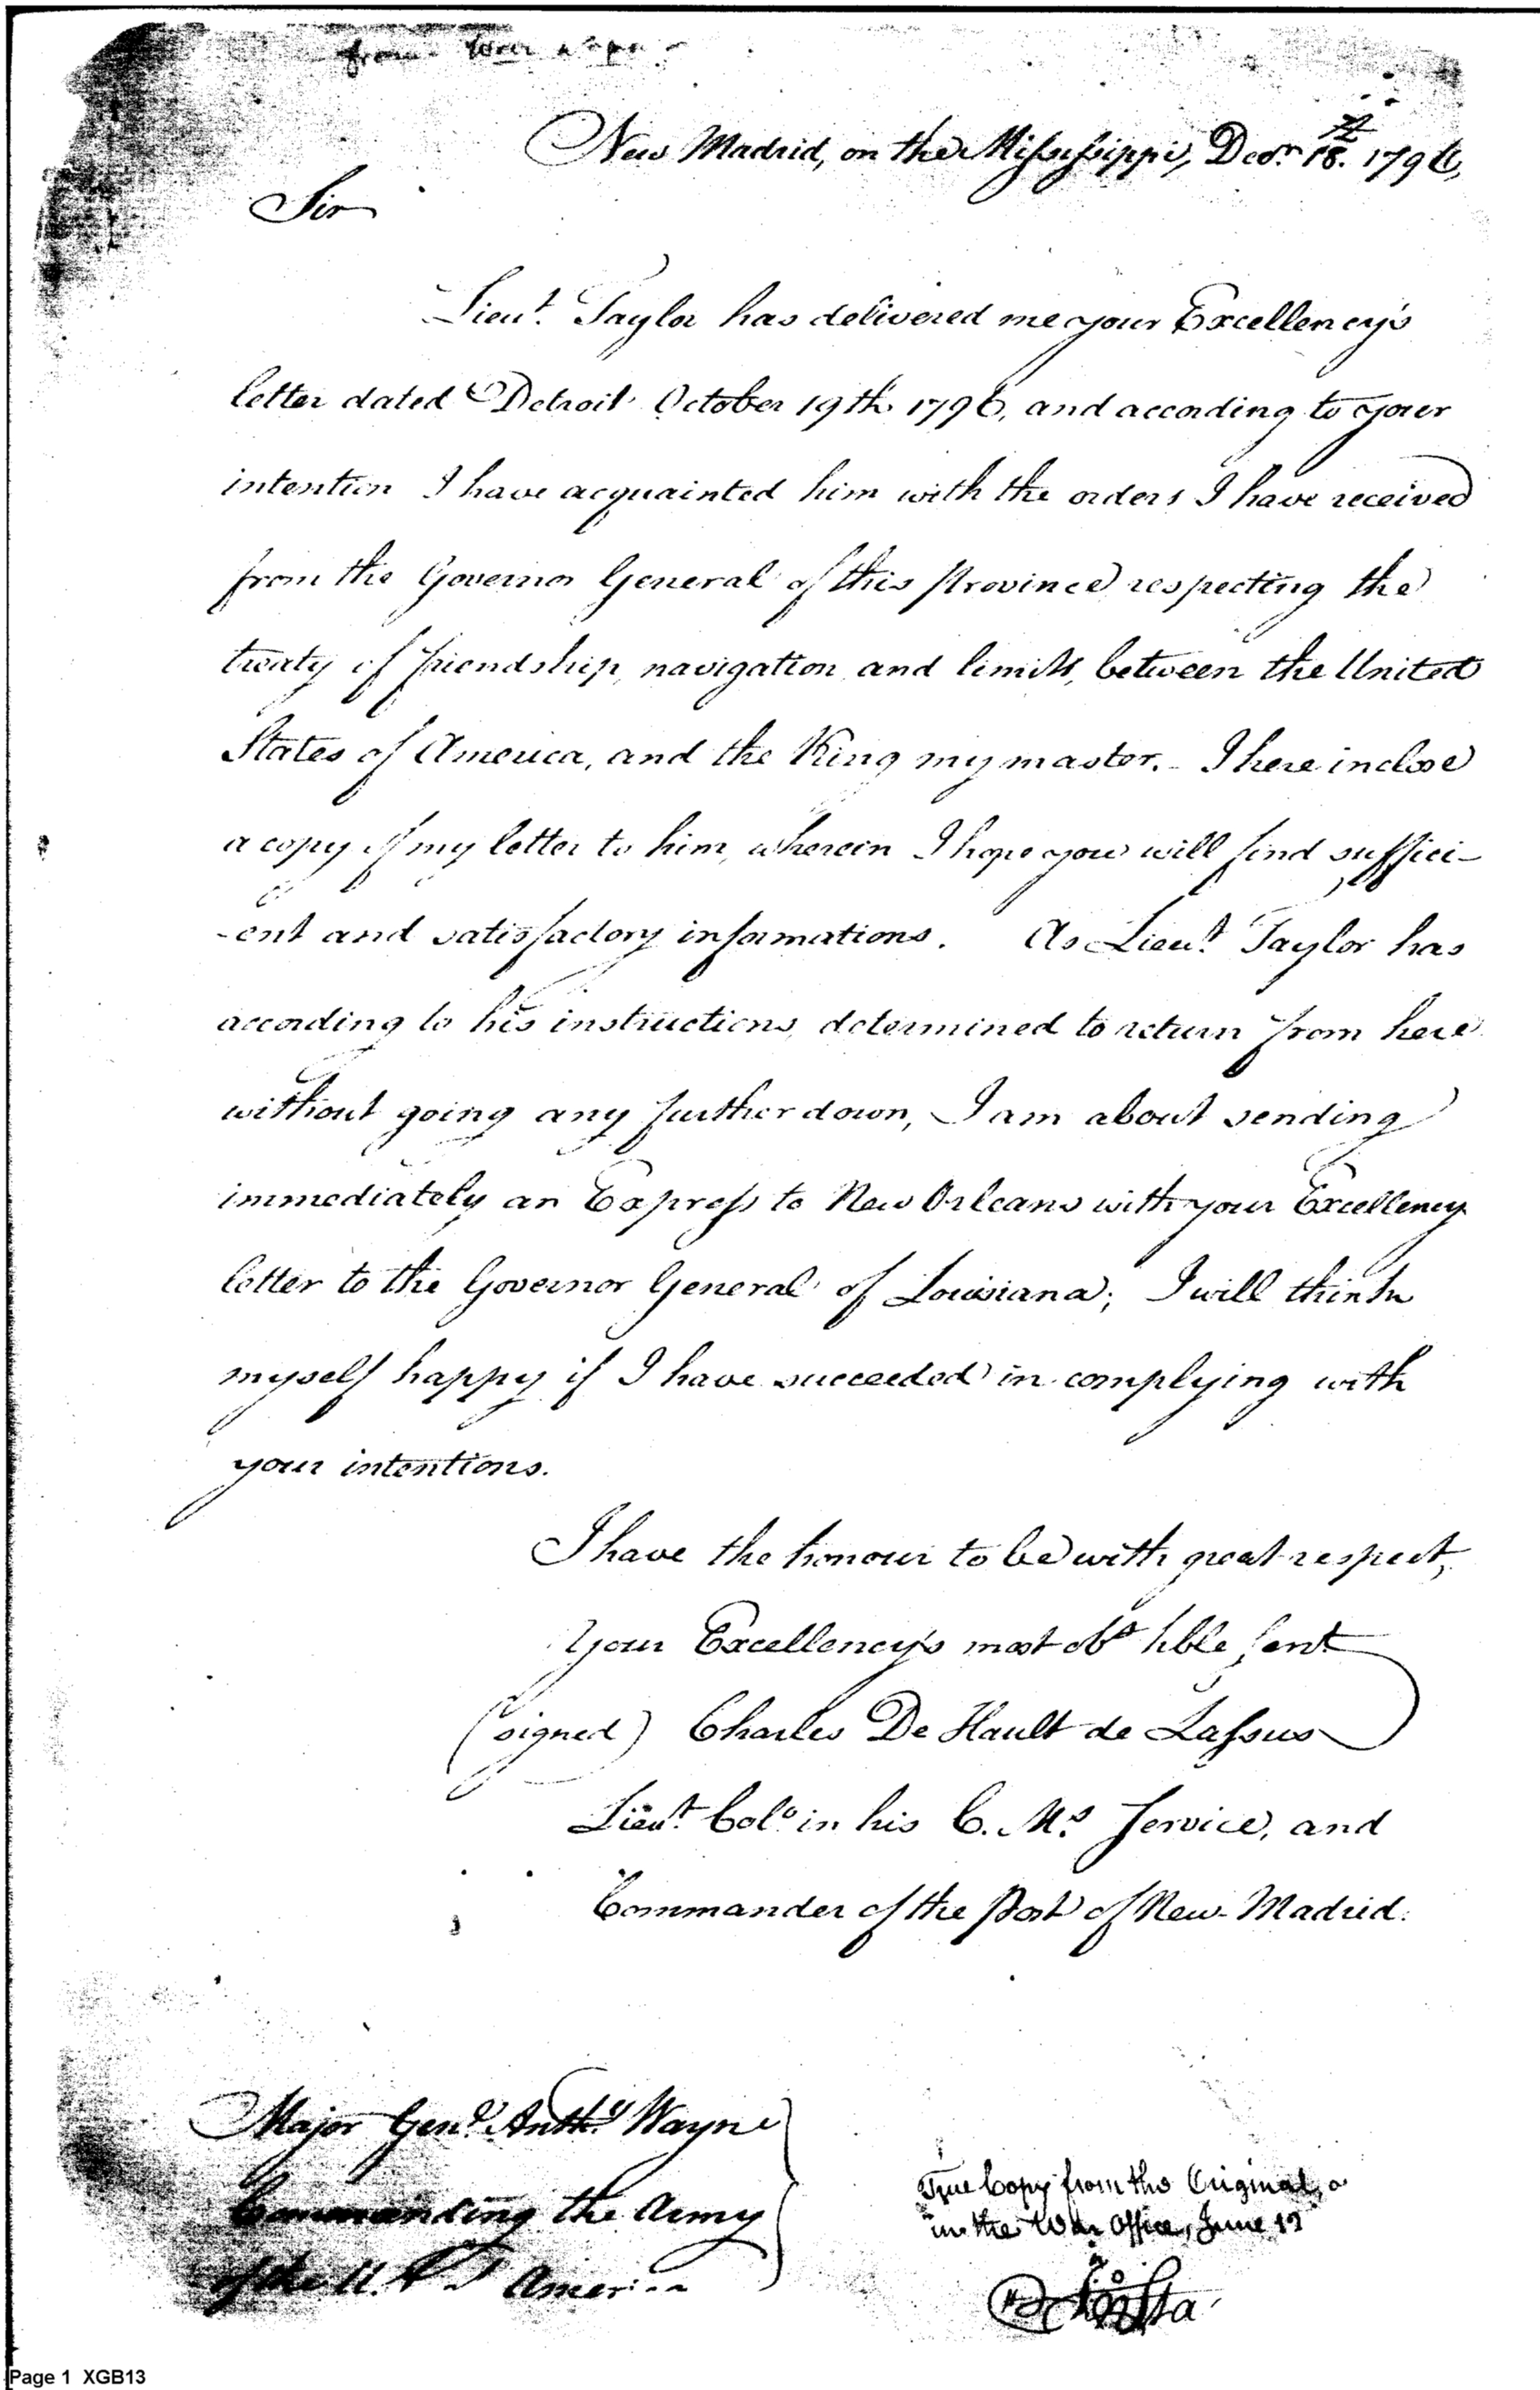 from
New Madrid, on the Mississippi, Decr. 18th. 1796,
Sir
Lieut. Taylor has delivered me your Excellency's
letter dated Detroit October 19th. 1796, and according to your
intention I have acquainted him with the orders I have received
from the Governor General of this Province respecting the
treaty of friendship, navigation and limits, between the United
States of America, and the King my master. - I here inclose
a copy of my letter to him, wherein I hope you will find suffici-
-ent and satisfactory informations. As Lieut. Taylor has
according to his instructions, determined to return from here
without going any further down, I am about sending
immediately an Express to New Orleans with your Excellency
letter to the Governor General of Louisiana; I will think
myself happy if I have succeeded in complying with
your intentions.
I have the honour to be with great respect,
Your Excellency's most obt hble sert
(signed) Charles De Hault de Lassus
Lieut. Colo. in his C. Ms. Service, and
Commander of the Post of New-Madrid.
Major Genl. Anthy. Wayne
Commanding the Army
of the U. S. of America
True Copy from the Original,
in the War Office, June 17
Page 1 XGB13